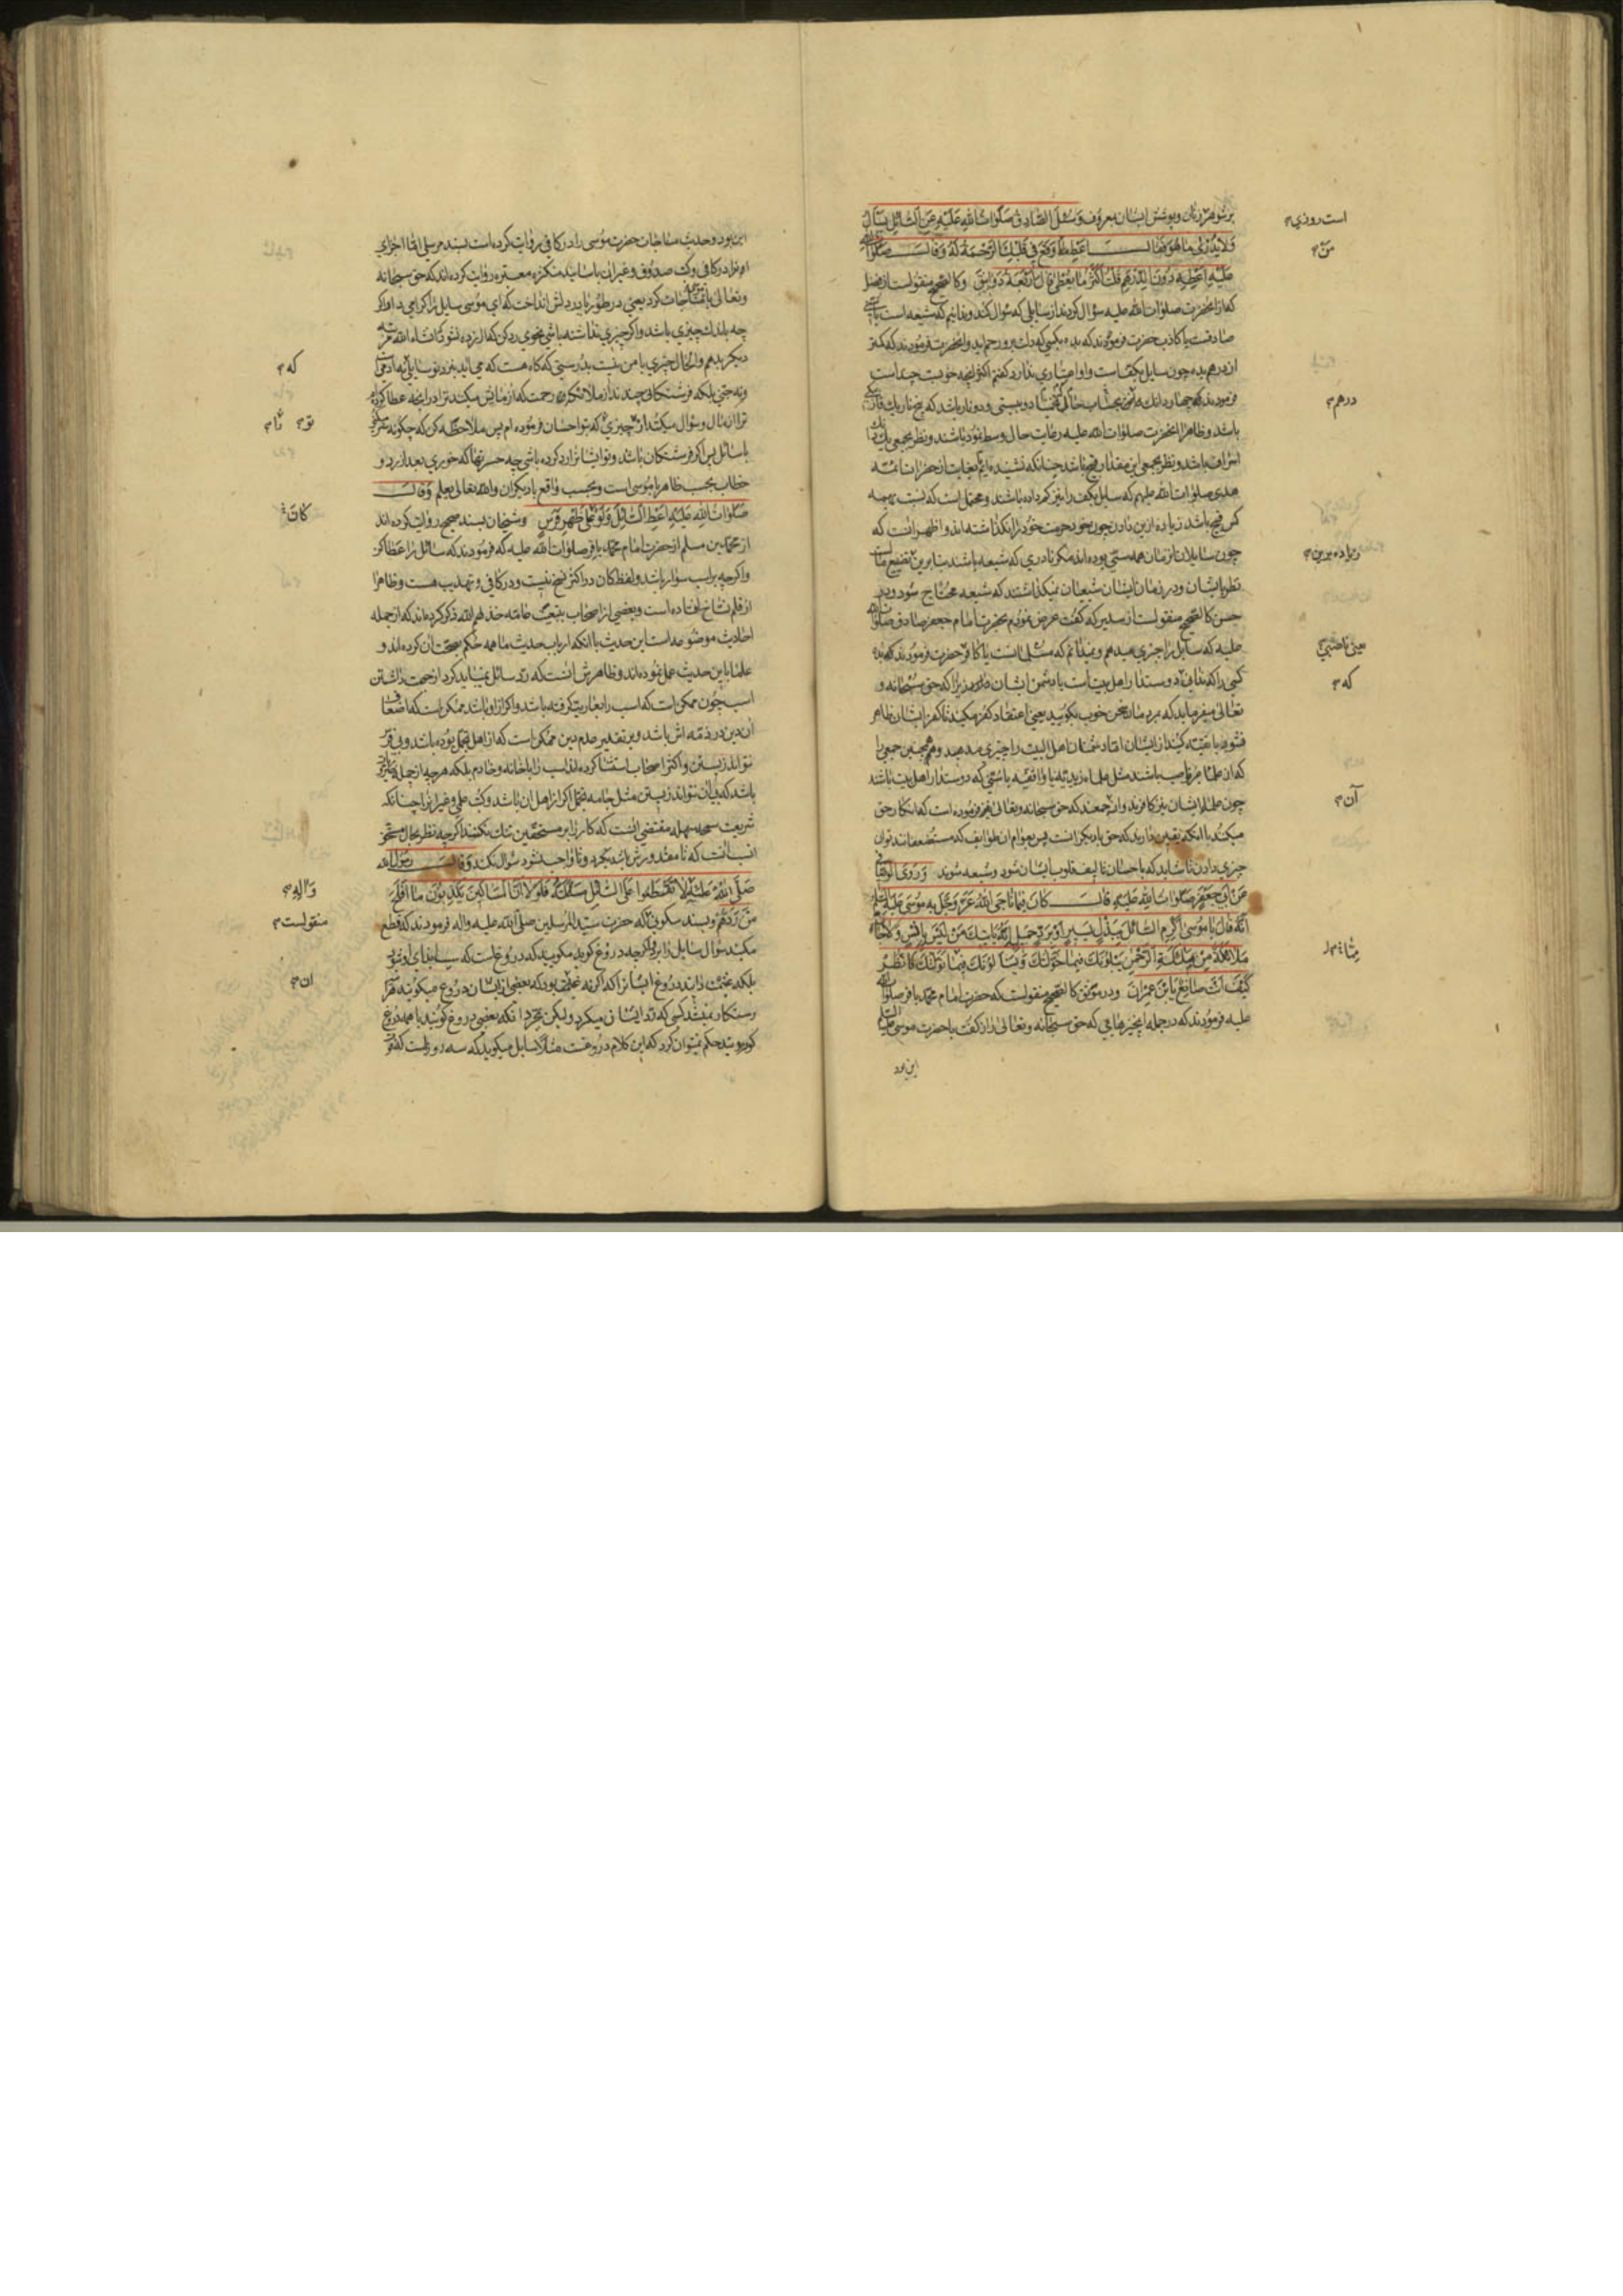 بر شوهر زنان و پوشش ایشان بمعروف وَسُئِلَ الصَّادِقُ صَلَوَاتُ اللهِ عَلَیْهِ عَنِ السَّائِلِ یَسْأَلُ
وَلَا یُدْرٰی مَا هُوَ فَقَالَ اَعْطِ مَنْ وَقَعَ فِی قَلْبِكَ الرَّحْمَةُ لَهُ وَقَالَ صَلَوَاتُ الله
عَلَیْهِ اَعْطِهِ دُونَ الدِّرْهَمِ قُلْتُ اَكْثَرُ مَا یُعْطٰی قَالَ اَرْبَعَةُ دَوَانِیقَ وکالصحیح منقولست از فضل
که از انحضرت صلوات الله علیه سؤال کردند از سایلی که سؤال کند و ندانیم که شیعه است یا
صادقست یا کاذب حضرت فرمودند که بده بکسی که دلت برو رحم اید و انحضرت فرمودند که کمتر
از درهم بده چون سایل بکف است و اعتباری ندارد گفتم اکثر انچه خوبست چند است
فرمودند که چهار دانك
باشد و ظاهرا انحضرت صلوات الله علیه رعایت حال وسط نموده باشند و نظر بجمعی یك
اسراف باشد و نظر بجمعی این مقدار قبیح باشد چنانکه نشنیده ایم بغایت از حضرات ائمه
هدی صلوات الله علیهم که سایل بکف را نیز کم داده باشند و محتمل است که نسبت بهمه
کس قبیح باشد زیاده ازین دادن چون خود حرمت خود را نگذاشته اند و اظهر انست که
چون سایلان ان زمان همه سنی بوده اند مگر نادری که شیعه باشند بنا برین تضییع مال است
نظر بایشان و در زمان ایشان شیعیان نمیگذاشتند که شیعه محتاج شود و در
حسن کالصحیح منقولست از سدیر که گفت عرض نمودم بحضرت امام جعفر صادق صلوات الله
علیه که سایل را چیزی میدهم و نمیدانم که مسلمانست یا کافر حضرت فرمودند که بده
کسی را که ندانی دوستدار اهل بیت است یا دشمن ایشان دارد زیرا که حق سبحانه و
تعالی میفرماید که بمردمان سخن خوب بگویید یعنی اعتقاد کفر مکنید تا کفر ایشان ظاهر
شود یا تقیه کنید از ایشان اما دشمنان اهل البیت را چیزی مدهید و همچنین جمعی را
که از علمای غیر ناصب باشند مثل علماء زیدیه یا واقفیه یا سنی که دوستدار اهل بیت باشند
چون علماء ایشان نیز کافرند و از جمعند که حق سبحانه و تعالی فرموده است که انکار حق
میکنند با آنکه یقین دارند که حق با دیگرانست پس بعوام ان طوایف که مستضعفانند توان
چیزی دادن تا شاید که باحسان تالیف قلوب ایشان شود و شیعه شوند وَرَوَی الْوَصَّافِی
عَنْ اَبِی جَعْفَرٍ صَلَوَاتُ اللهِ عَلَیْهِ قَالَ كَانَ فِیمَا نَاجَی اللهُ عَزَّ وَجَلَّ بِهِ مُوسٰی عَلَیْهِ السلام
اَنَّهُ قَالَ یَا مُوسٰی اَكْرِمِ السَّائِلَ بِبَذْلٍ یَسِیرٍ اَوْ بِرَدٍّ جَمِیلٍ اِنَّهُ یَاتِیكَ مَنْ لَیْسَ بِاِنْسٍ وَلَا جَانٍّ
مَلَائِكَةٌ مِنْ مَلَائِكَةِ الرَّحْمٰنِ یَبْلُونَكَ فِیمَا خَوَّلْتُكَ وَیَسْأَلُونَكَ فِیمَا نَوَّلْتُكَ فَانْظُرْ
كَیْفَ اَنْتَ صَانِعٌ یَا بْنَ عِمْرَانَ و در موثق کالصحیح منقولست که حضرت امام محمد باقر صلوات الله
علیه فرمودند که در جمله انچیزهایی که حق سبحانه و تعالی راز گفت با حضرت موسی علیه السلام
این بود
است روزی
مَنْ
درهم
زیاده برین
یعنی ناصبی
که
آن
این بود و حدیث مناجات حضرت موسی را در کافی روایت کرده است بسند مرسلی اما اجزای
انرا در کافی و کتب صدوق و غیر ان باسانید متکثره معتبره روایت کرده اند که حق سبحانه
و تعالی با مناجات کرد یعنی در طور یا در دلش انداخت که ای موسی سایل را گرامی دار اگر
چه باندك چیزی باشد و اگر چیزی نداشته باشی بخوبی رد کن که ازرده نشود که انشاء الله مرتبه
دیگر بدهم و الحال چیزی با من نیست بدرستی که گاه هست که می اید بنزد تو سایلی نه ادمی است
و نه جنی بلکه فرشتگانی چندند از ملائکه رحمت که ازمایش میکنند ترا در انچه عطا کرده ام
ترا از مال و سؤال میکنند از چیزی که بتو احسان فرموده ام پس ملاحظه کن که چگونه
با سائل پس اگر فرشتگان باشند و تو ایشانرا رد کرده باشی چه حسرتها که خوری بعد از رد و
خطاب بحسب ظاهر با موسی است و بحسب واقع با دیگران والله تعالی یعلم وَقَالَ
صَلَوَاتُ اللهِ عَلَیْهِ اَعْطِ السَّائِلَ وَلَوْ عَلٰی ظَهْرِ فَرَسٍ و شیخان بسند صحیح روایت کرده اند
از محمد بن مسلم از حضرت امام محمد باقر صلوات الله علیه که فرمودند که سائل را عطا کن
و اگر چه بر اسب سوار باشد و لفظ کان در اکثر نسخ نیست و در کافی و تهذیب هست و ظاهرا
از قلم نساخ افتاده است و بعضی از اصحاب بتبعیت عامه خذلهم الله ذکر کرده اند که از جمله
احادیث موضوعه است این حدیث با انکه ارباب حدیث ما همه حکم بصحت ان کرده اند و
علما باین حدیث عمل نموده اند و ظاهرش انست که رد سائل نمیباید کرد از جهت داشتن
اسب چون ممکن است که اسب را بعاریت گرفته باشد و اگر از او باشد ممکن است که اضعاف
ان دین در ذمه اش باشد و بر تقدیر عدم دین ممکن است که از اهل تجمل بوده باشد و بی فرس
نتواند زیستن و اکثر اصحاب استثنا کرده اند اسب را با خانه و خادم بلکه هر چه از جمله
باشد که بی ان نتواند زیستن مثل جامه تجمل اگر از اهل ان باشد و کتب علمی و غیر انرا چنانکه
شریعت سمحه سهله مقتضی انست که کار را بر مستحقین تنك نکنند اگر چه نظر بحال مستحق
انسب انست که تا مقدورش باشد نگیرد و تا واجب نشود سؤال نکند وَقَالَ رَسُولُ الله
صَلَّی اللهُ عَلَیْهِ لَا تَقْطَعُوا عَلَی السَّائِلِ مَسْأَلَتَهُ فَلَوْلَا اَنَّ الْمَسَاكِینَ یَكْذِبُونَ مَا اَفْلَحَ
مَنْ رَدَّهُمْ و بسند سکونی که حضرت سید المرسلین صلی الله علیه واله فرمودند که قطع
مکنید سؤال سایل را برو اگر چه دروغ گوید مگویید که دروغ است که سیاست
بلکه غنیمت دانید دروغ ایشانرا که اگر نه بود که بعضی از ایشان دروغ میگویند هرگز
رستگار نمیشد کسی که رد ایشان میکرد ولیکن بمجرد انکه بعضی دروغ گویند یا همه دروغ
گویند حکم نمیتوان کرد که این کلام دروغست مثلا سایل میگوید که سه روز است که قوت
که
تو
كَانَ
وَالِهِ
منقولست
ان